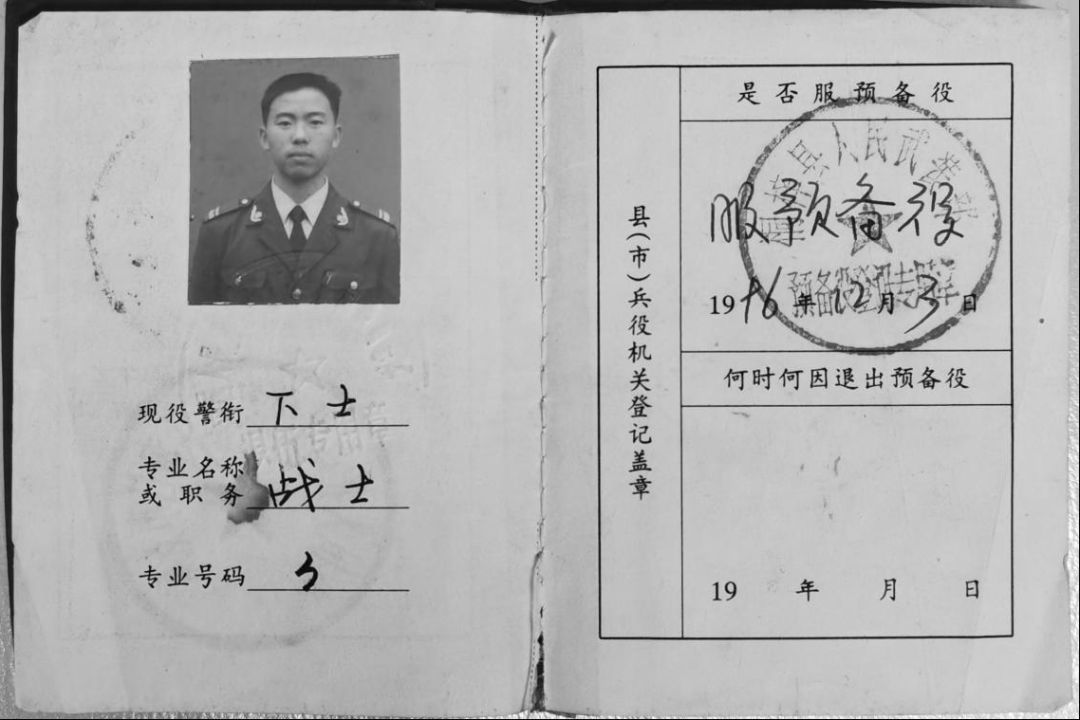 现役警衔 下士
专业名称
或职务 战士
专业号码
县(市)兵役机关登记盖章
是否服预备役
县人民武装部
服预备役
预备役登记专用章
1996年12月3日
何时何因退出预备役
19 年 月 日